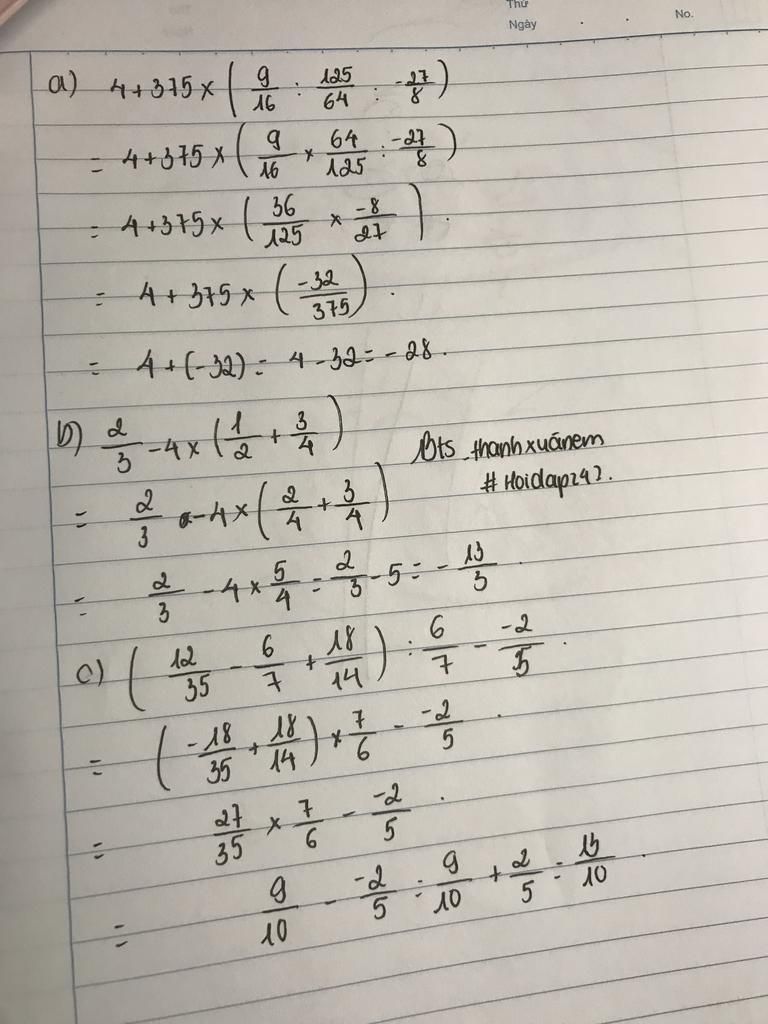 Thứ
Ngày . . No.
a) 4 + 375 × ( 9/16 : 125/64 : -27/8 )
= 4 + 375 × ( 9/16 × 64/125 : -27/8 )
= 4 + 375 × ( 36/125 × -8/27 ) .
= 4 + 375 × ( -32/375 ) .
= 4 + (-32) = 4 - 32 = - 28 .
b) 2/3 - 4 × ( 1/2 + 3/4 )
Bts_thanhxuânem
= 2/3 - 4 × ( 2/4 + 3/4 )
# Hoidap247.
= 2/3 - 4 × 5/4 = 2/3 - 5 = - 13/3 .
c) ( 12/35 - 6/7 + 18/14 ) : 6/7 - -2/5 .
= ( -18/35 + 18/14 ) × 7/6 - -2/5 .
= 27/35 × 7/6 - -2/5 .
= 9/10 - -2/5 = 9/10 + 2/5 = 13/10 .